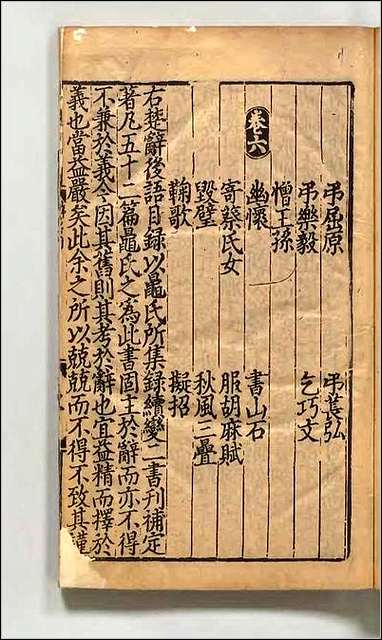 弔屈原 弔萇弘
弔樂毅 乞巧文
憎王孫
卷六
幽懷 書山石
寄蔡氏女 服胡麻賦
毀璧 秋風三疊
鞠歌 擬招
右楚辭後語目錄以鼂氏所集錄續變二書刊補定
著凡五十二篇鼂氏之為此書固主於辭而亦不得
不兼於義今因其舊則其考於辭也宜益精而擇於
義也當益嚴矣此余之所以兢兢而不得不致其謹